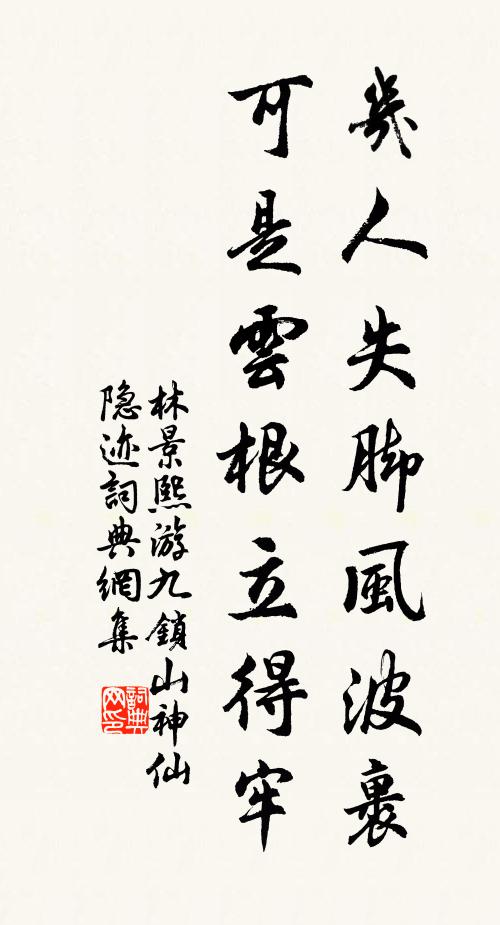 幾人失脚風波裏
可是雲根立得牢
林景熙游九鎖山神仙
隐迹詞典網集
詞典网印